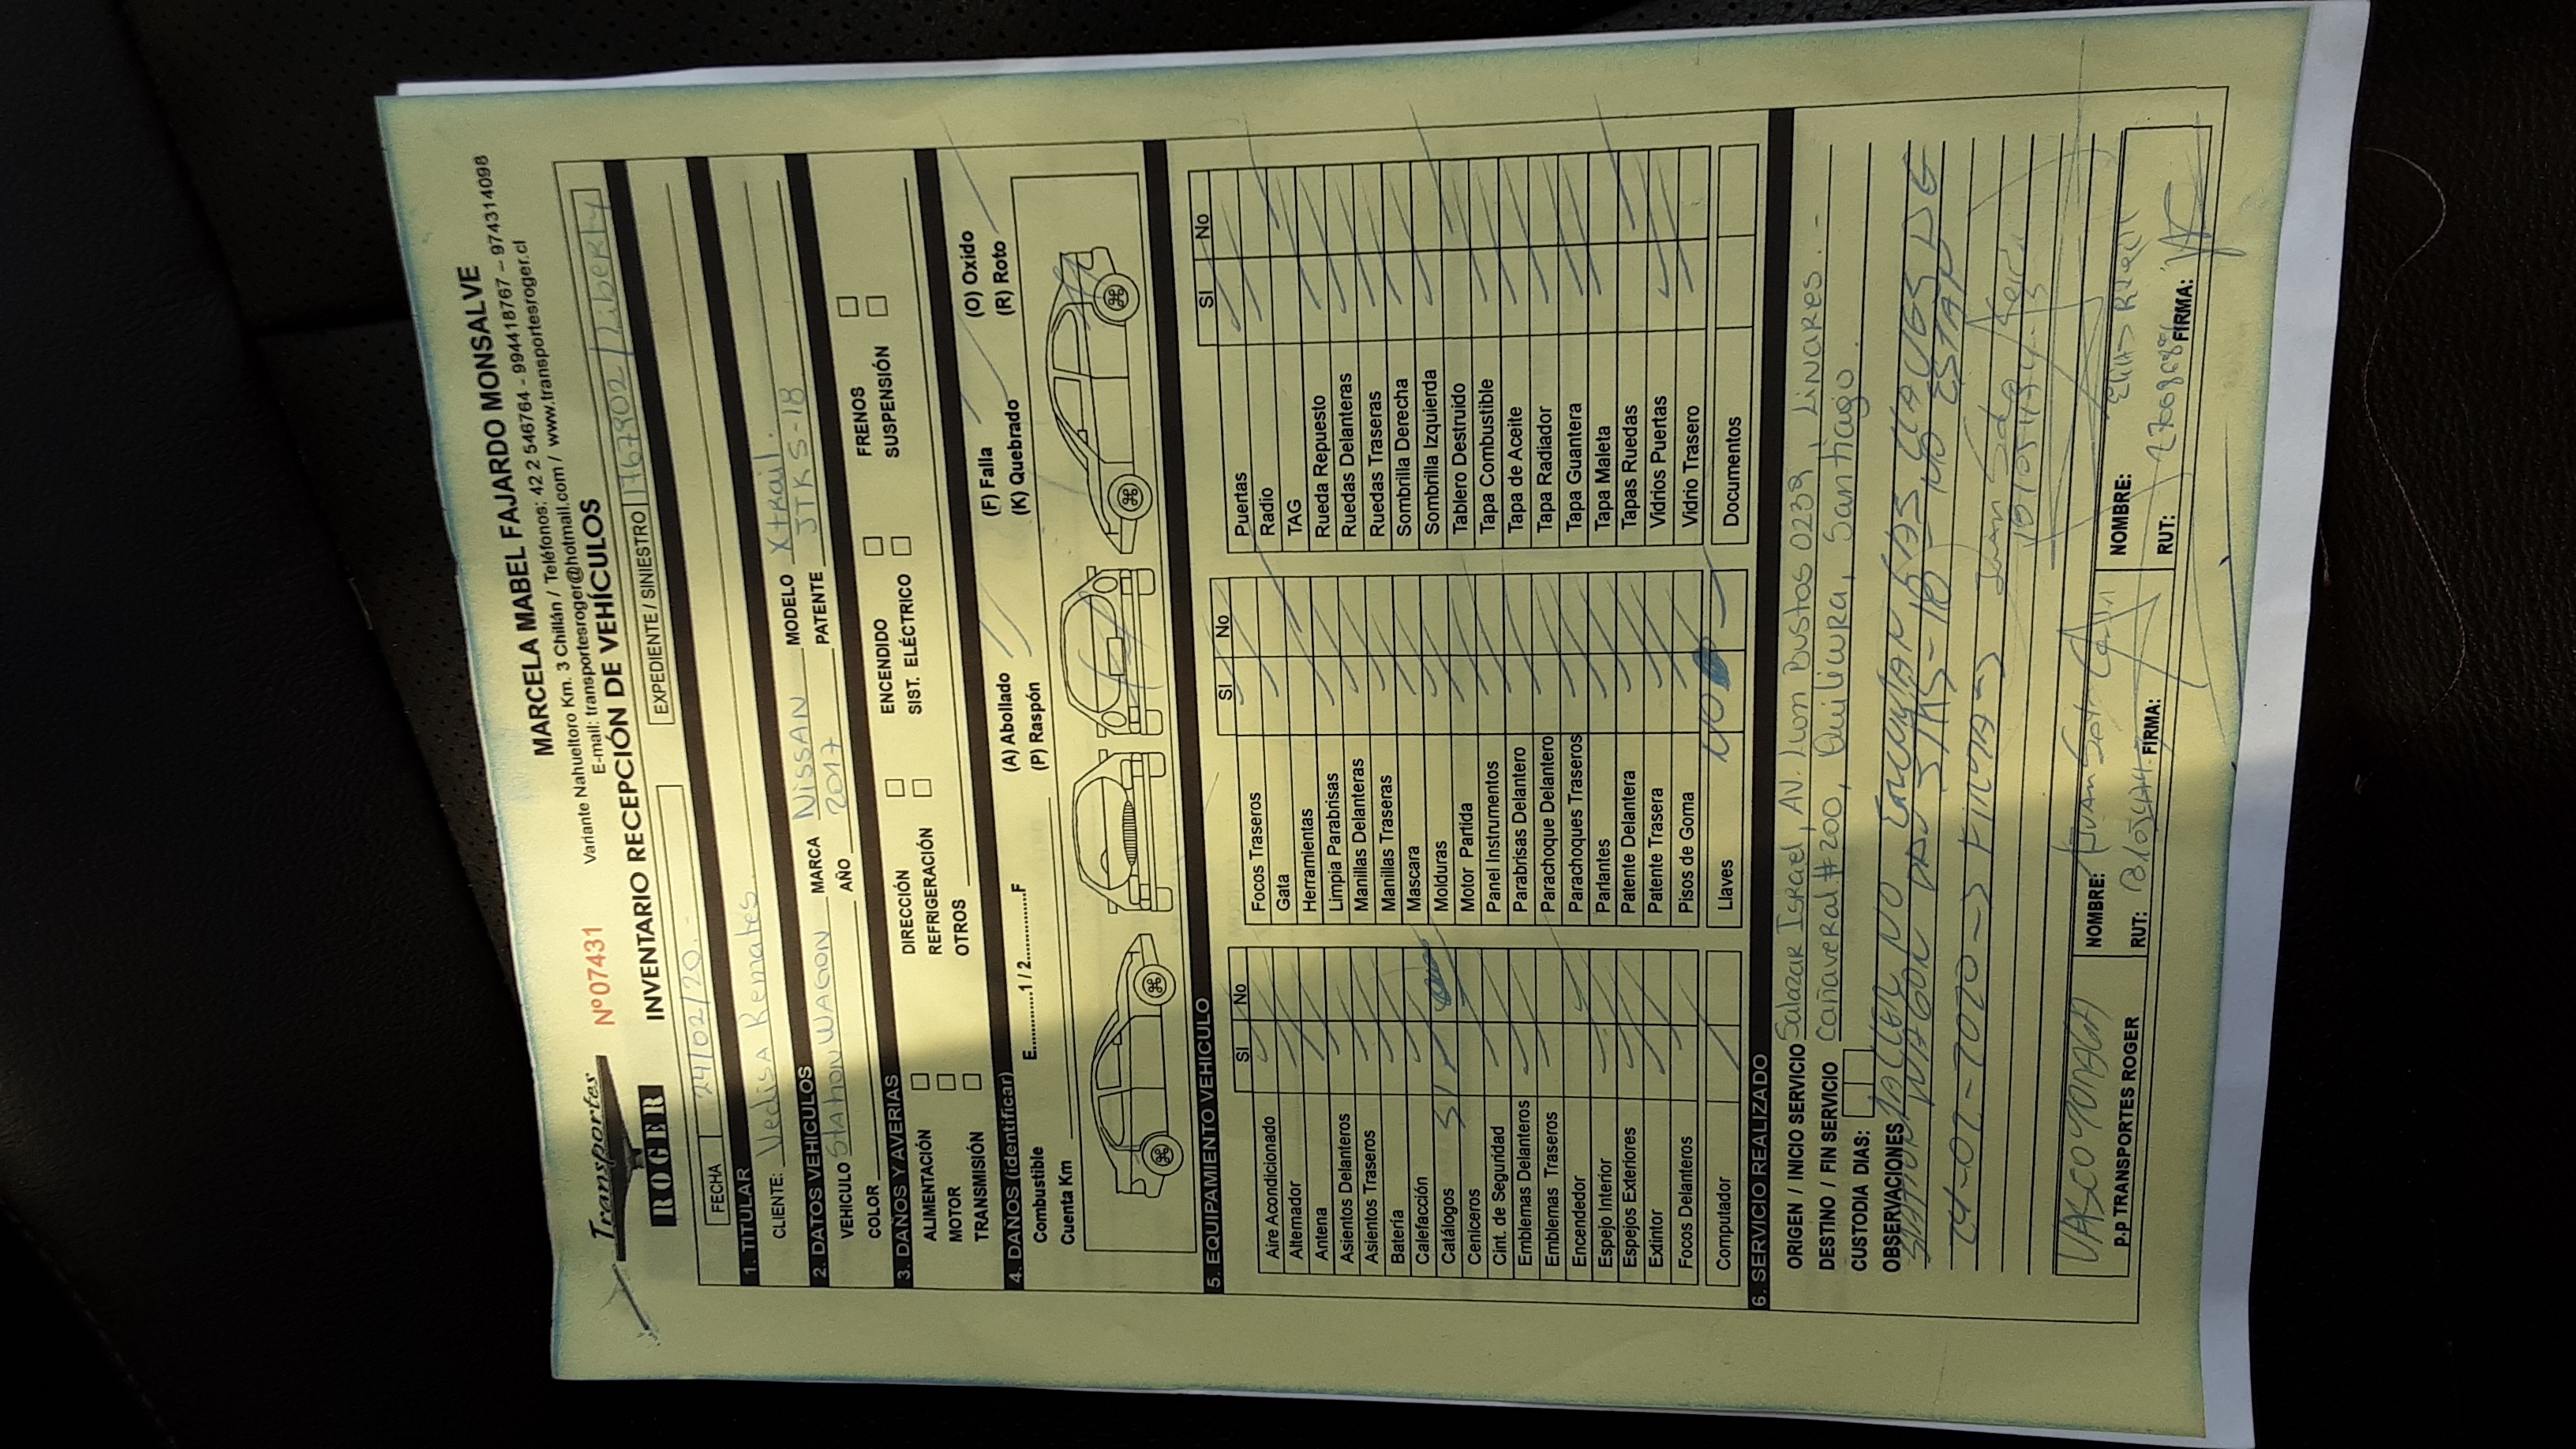 Transportes
ROGER
Nº07431
MARCELA MABEL FAJARDO MONSALVE
Variante Nahueltoro Km. 3 Chillán / Teléfonos: 42 2 546764 - 994418767 – 974314098
E-mail: transportesroger@hotmail.com / www.transportesroger.cl
INVENTARIO RECEPCIÓN DE VEHÍCULOS
FECHA 24/02/20.-
EXPEDIENTE / SINIESTRO / Liberty
1. TITULAR
CLIENTE: Vedisa Remates.
2. DATOS VEHICULOS
VEHICULO Station WAGON MARCA NISSAN MODELO Xtrail.
COLOR AÑO 2017 PATENTE JTKS-18
3. DAÑOS Y AVERIAS
ALIMENTACIÓN DIRECCIÓN ENCENDIDO FRENOS
MOTOR REFRIGERACIÓN SIST. ELÉCTRICO SUSPENSIÓN
TRANSMISIÓN OTROS
4. DAÑOS (identificar)
Combustible E............1 / 2............F (A) Abollado (F) Falla (O) Oxido
Cuenta Km (P) Raspón (K) Quebrado (R) Roto
5. EQUIPAMIENTO VEHICULO
SI No
Aire Acondicionado
Alternador
Antena
Asientos Delanteros
Asientos Traseros
Batería
Calefacción
Catálogos SI
Ceniceros
Cint. de Seguridad
Emblemas Delanteros
Emblemas Traseros
Encendedor
Espejo Interior
Espejos Exteriores
Extintor
Focos Delanteros
Computador
SI No
Focos Traseros
Gata
Herramientas
Limpia Parabrisas
Manillas Delanteras
Manillas Traseras
Mascara
Molduras
Motor Partida
Panel Instrumentos
Parabrisas Delantero
Parachoque Delantero
Parachoques Traseros
Parlantes
Patente Delantera
Patente Trasera
Pisos de Goma
Llaves NO
SI No
Puertas
Radio
TAG
Rueda Repuesto
Ruedas Delanteras
Ruedas Traseras
Sombrilla Derecha
Sombrilla Izquierda
Tablero Destruido
Tapa Combustible
Tapa de Aceite
Tapa Radiador
Tapa Guantera
Tapa Maleta
Tapas Ruedas
Vidrios Puertas
Vidrio Trasero
Documentos
6. SERVICIO REALIZADO
ORIGEN / INICIO SERVICIO Salazar Israel, AV. Leon Bustos 0239, Linares.-
DESTINO / FIN SERVICIO Cañaveral #200, Quilicura, Santiago.
CUSTODIA DIAS:
OBSERVACIONES TALLER NO LAS LLAVES DE
STATION WAGON JTKS-18 NO ESTAN
24-02-2020 -> FIRMA ->
VASCO
P.P TRANSPORTES ROGER
NOMBRE: Juan Soto
RUT: FIRMA:
NOMBRE:
RUT: FIRMA: